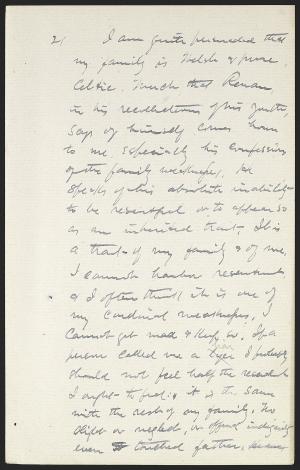 2/ I am quite persuaded that
my family is Welsh & pure
Celtic. Much that Renan,
in his recollections of his youth,
says of himself comes home
to me, especially his confession
of the family weakness, he
speaks of his absolute inability
to be resentful or to appear so
as an inherited trait. It is
a trait of my family & of me.
I cannot harbor resentment
& I often think it is one of
my cardinal weaknesses. I
cannot get mad & keep so. If a
person called me a liar I probably
should not feel half the resentment
I ought to feel & it is the same
with the rest of my family. No
slight or neglect, or indignity
even touched father,